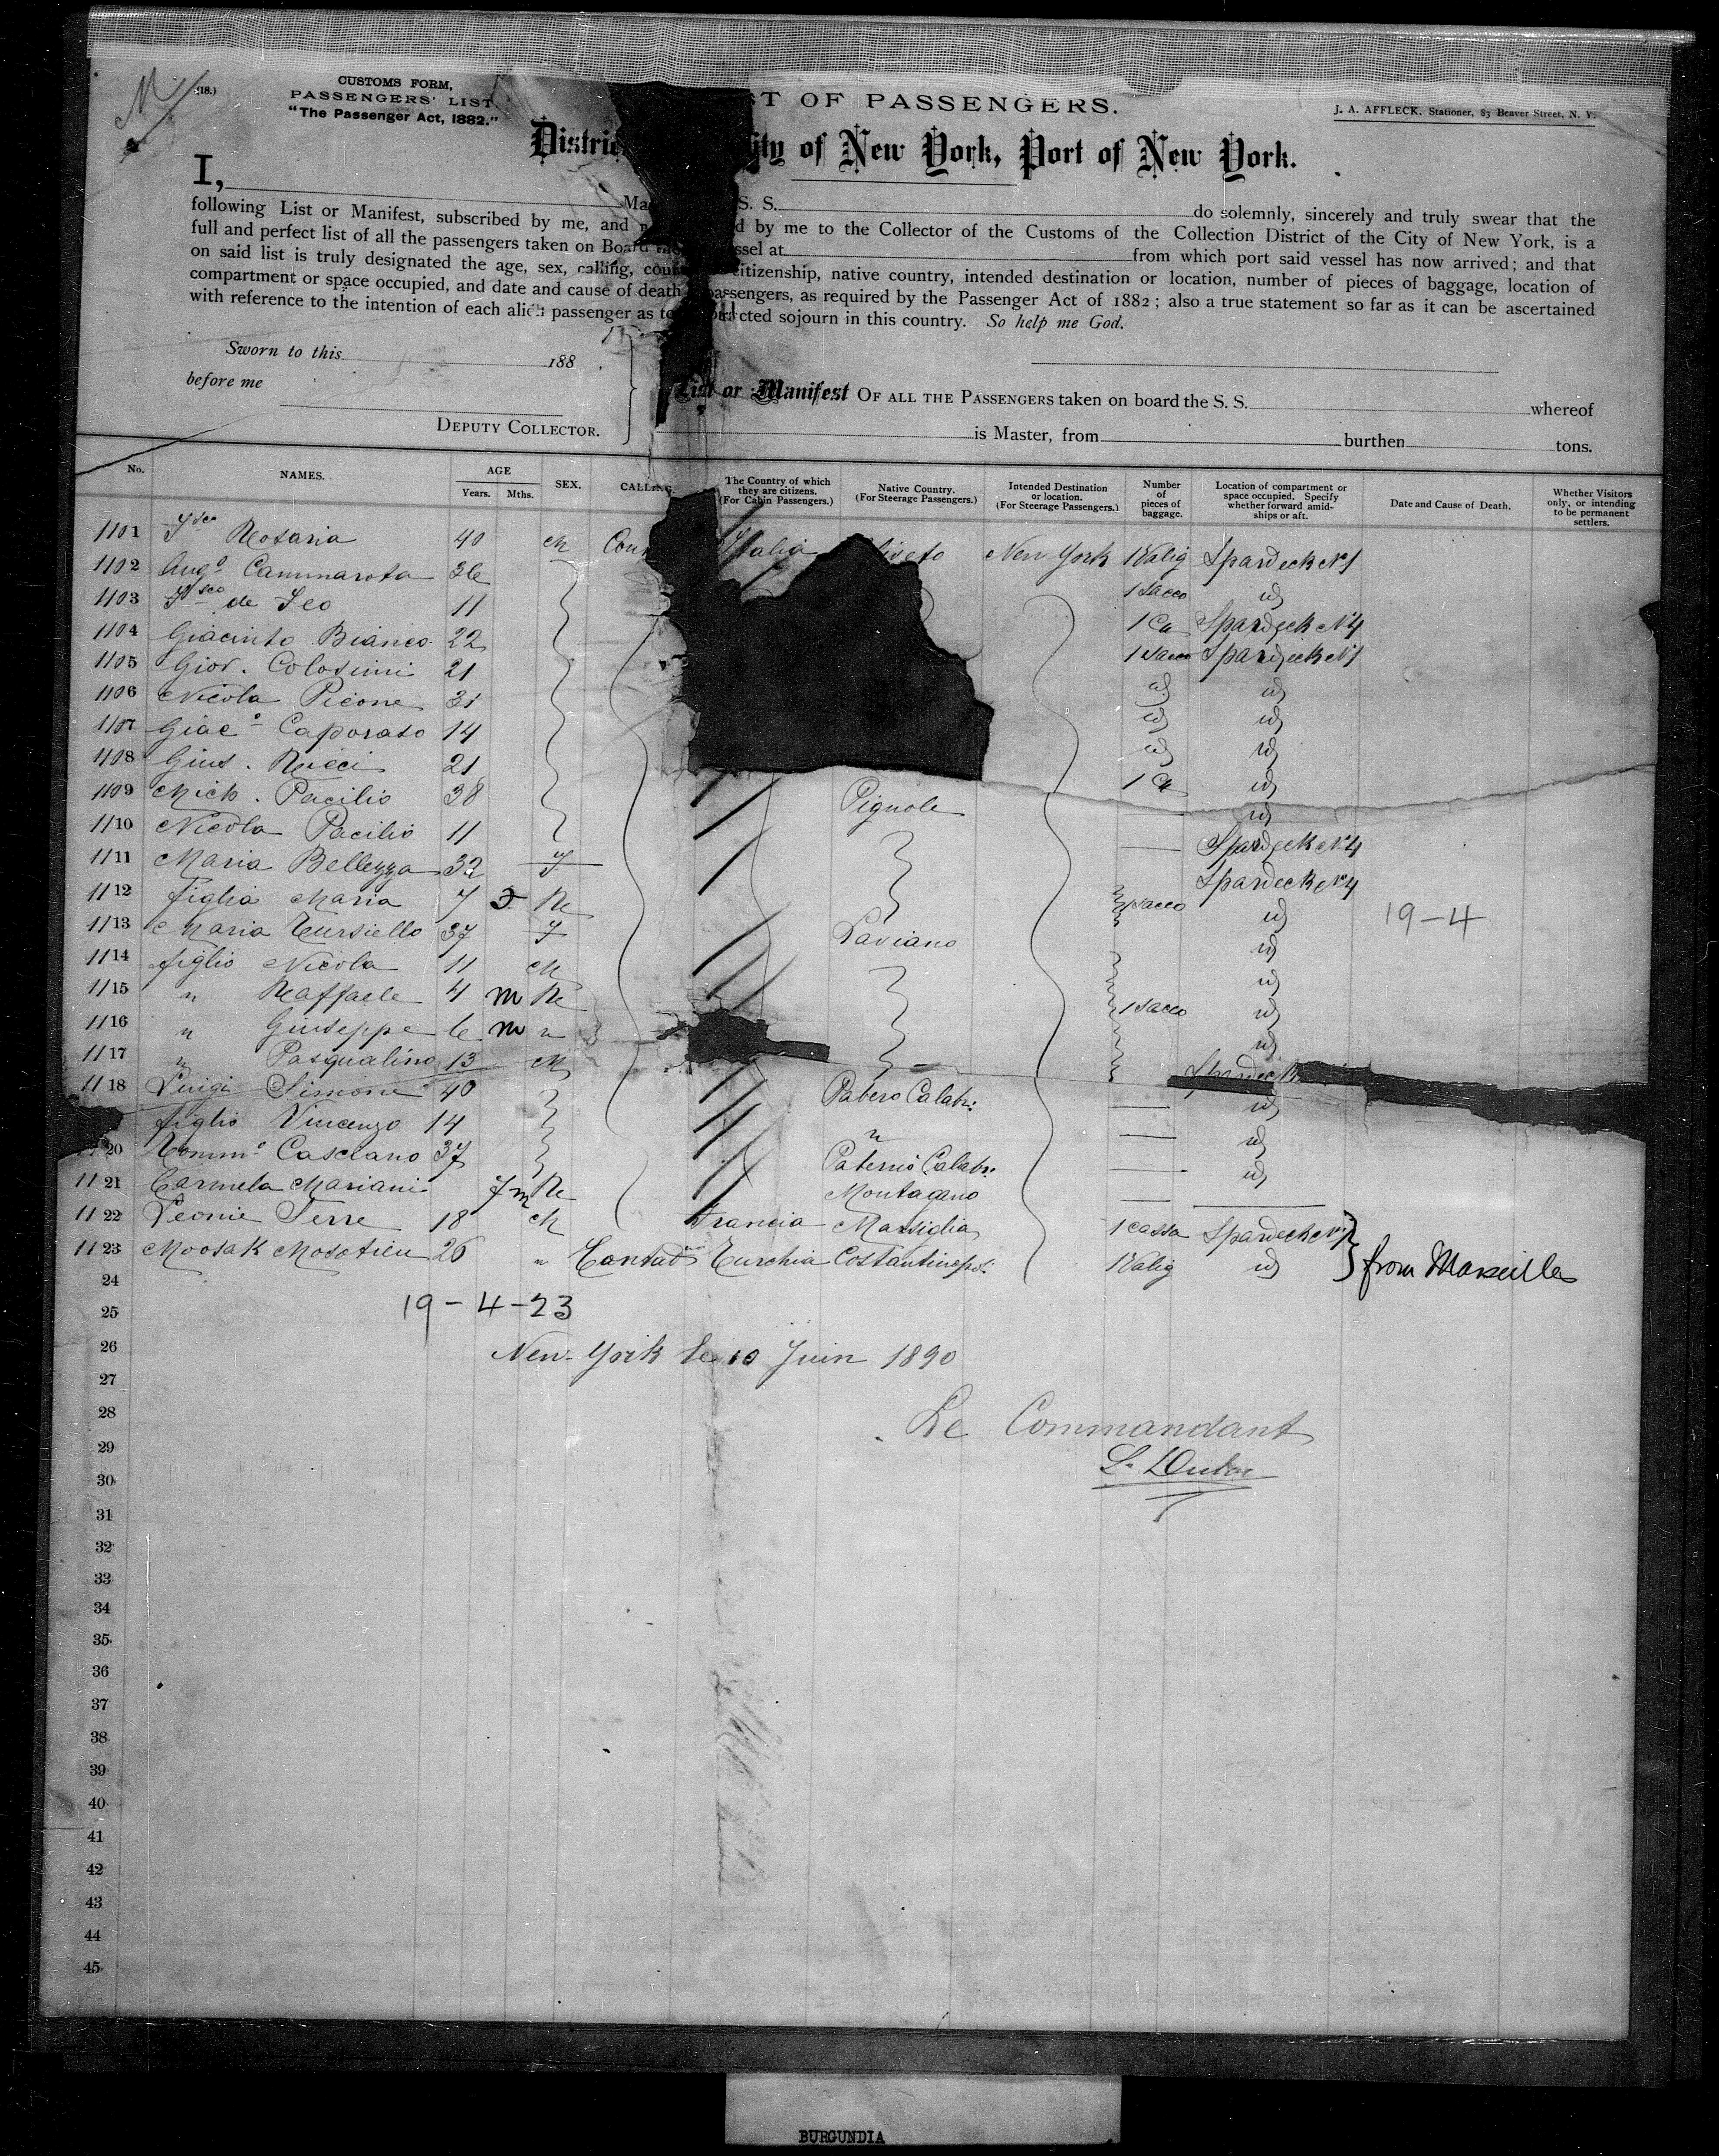 (18.)
CUSTOMS FORM,
PASSENGERS' LIST
"The Passenger Act, 1882."
ST OF PASSENGERS.
J. A. AFFLECK, Stationer, 83 Beaver Street, N. Y.
Distric ity of New York, Port of New York.
I, Ma S. S. do solemnly, sincerely and truly swear that the
following List or Manifest, subscribed by me, and d by me to the Collector of the Customs of the Collection District of the City of New York, is a
full and perfect list of all the passengers taken on Board ssel at from which port said vessel has now arrived; and that
on said list is truly designated the age, sex, calling, coun citizenship, native country, intended destination or location, number of pieces of baggage, location of
compartment or space occupied, and date and cause of death passengers, as required by the Passenger Act of 1882; also a true statement so far as it can be ascertained
with reference to the intention of each alien passenger as to racted sojourn in this country. So help me God.
Sworn to this 188
before me
DEPUTY COLLECTOR.
List or Manifest OF ALL THE PASSENGERS taken on board the S. S. whereof
is Master, from burthen tons.
No. NAMES. AGE Years. Mths. SEX. CALLING. The Country of which they are citizens. (For Cabin Passengers.) Native Country. (For Steerage Passengers.) Intended Destination or location. (For Steerage Passengers.) Number of pieces of baggage. Location of compartment or space occupied. Specify whether forward, amidships or aft. Date and Cause of Death. Whether Visitors only, or intending to be permanent settlers.
1101 Fsco Rosaria 40 m Con Italia New York 1 Valig Spardeck N1
1102 Augo Cammarota 36 1 Sacco id
1103 Fsco de Leo 11 1 Ca Spardeck N4
1104 Giacinto Bianco 22 1 Sacco Spardeck N1
1105 Giov. Colosimi 21 id id
1106 Nicola Picone 31 id id
1107 Giaco Caporaso 14 id id
1108 Gius. Ricci 21 1 Ca id
1109 Mich. Pacilio 38 Pignole id
1110 Nicola Pacilio 11 Spardeck N4
1111 Maria Bellezza 32 f Spardeck N4
1112 figlia Maria 7 1 Sacco id 19-4
1113 Maria Tursiello 37 f Laviano id
1114 figlio Nicola 11 m id
1115 " Raffaele 4 m 1 Sacco id
1116 " Giuseppe 6 m " id
1117 " Pasqualino 13 m Spardeck
1118 Luigi Simone 40 Calabr: id
figlio Vincenzo 14 " id
20 Tommo Casciano 37 Paterno Calabr: id
1121 Carmela Mariani 7 m Montagano
1122 Leonie Serre 18 m Francia Marsiglia 1 cassa Spardeck N1
1123 Moosak 26 " Contad Turchia Costantinopo: 1 Valig id
from Marseilles
24
25
19-4-23
26
New-York le 10 Juin 1890
27
28
Le Commandant
29
30
31
32
33
34
35
36
37
38
39
40
41
42
43
44
45
BURGUNDIA